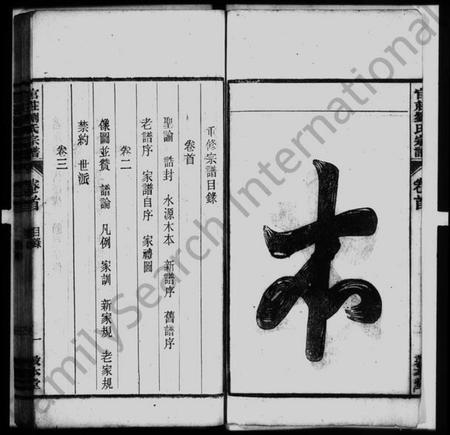 官莊劉氏宗譜
卷首
本
重修宗譜目錄
卷首
聖諭 誥封 水源木本 新譜序 舊譜序
老譜序 家譜自序 家禮圖
卷二
像圖並贊 譜論 凡例 家訓 新家規 老家規
禁約 世派
卷三
官莊劉氏宗譜
卷首
目錄
一
敦本堂
FamilySearch International